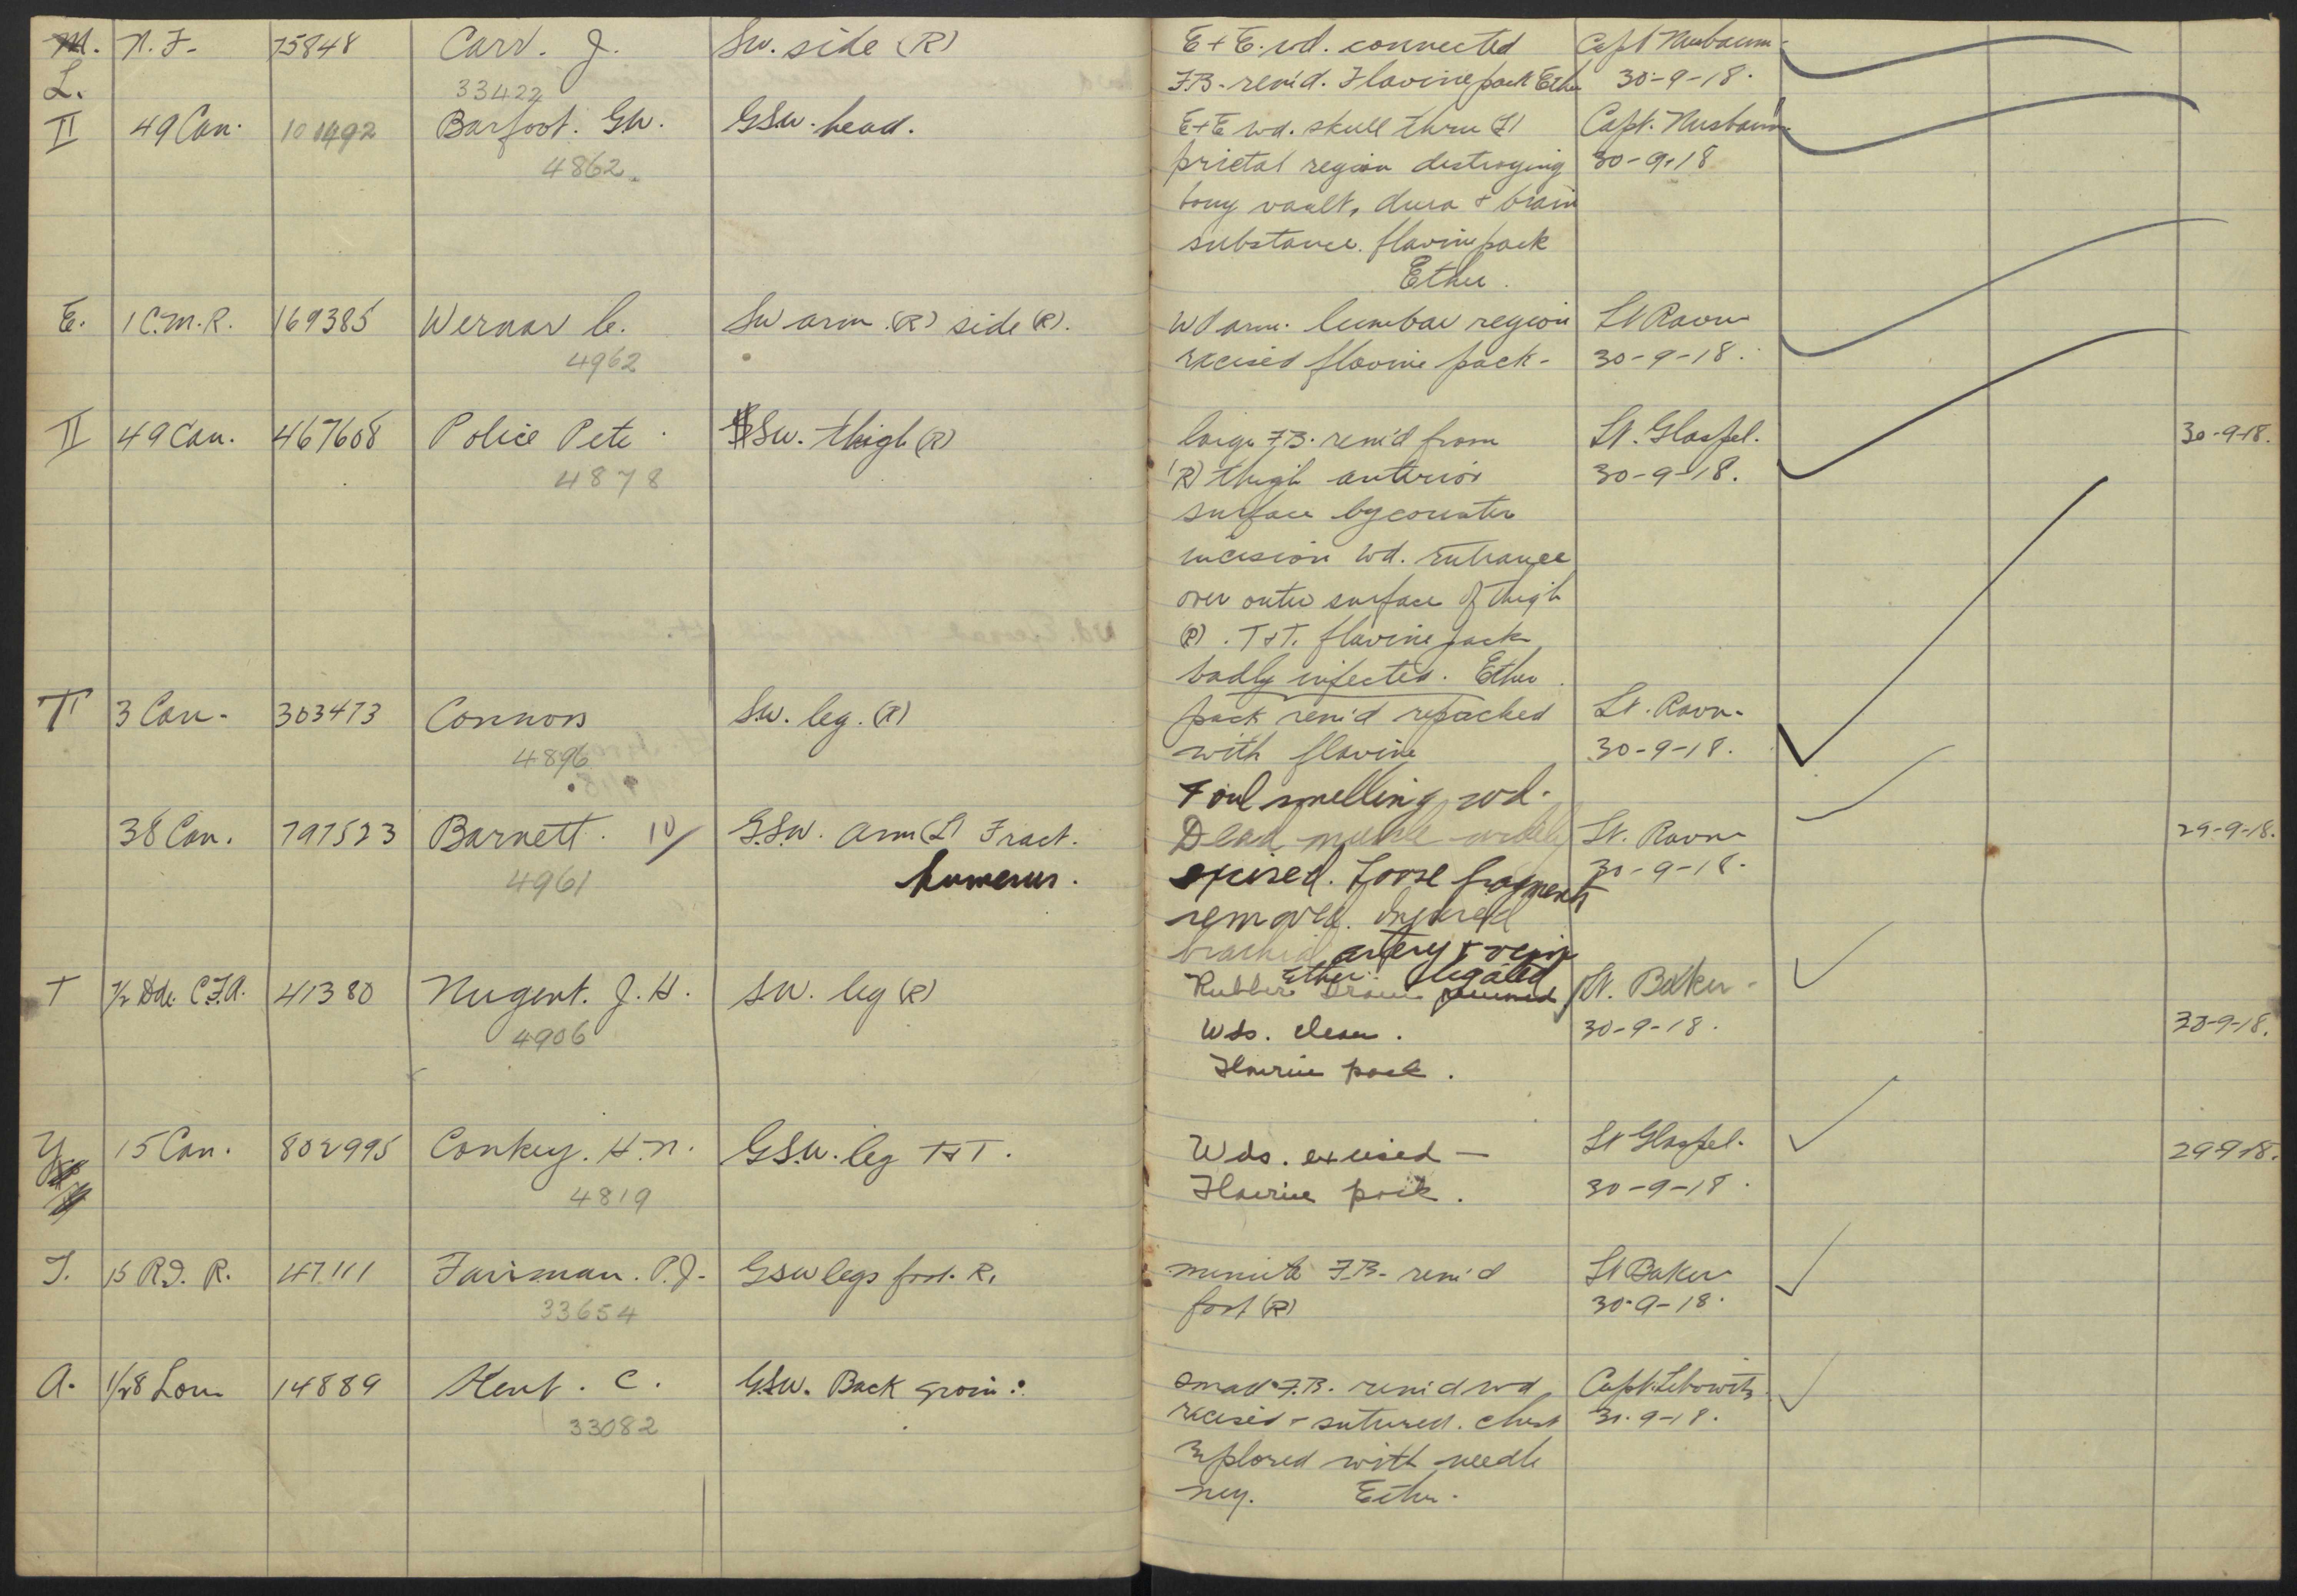 L. N. F. 75848 Carr. J. Sw. side (R) E + E. wd. connected Capt Nusbaum
33422 F.B. rem'd. Flavine pack Ether 30-9-18.
II 49 Can. 101492 Barfoot. GW. GSW. head. E + E wd. skull thru
4862. prietal region destroying 30-9-18
Capt. Nusbaum
bony vault, dura + brain
substance. flavine pack
Ether.
E. 1 C.M.R. 169385 Wernar C. SW arm. (R) side (R). Wd arm. lumbar region Lt Ravn
4962 excised flavine pack- 30-9-18.
II 49 Can. 467608 Police Pete. SW. thigh (R) large F.B. rem'd from Lt. Glaspel. 30-9-18.
4878 (R) thigh anterior 30-9-18.
surface by counter
incision wd. entrance
over outer surface of thigh
(R). T & T. flavine pack
badly infected. Ether.
T 3 Can. 303473 Connors SW. leg. (R) pack rem'd repacked Lt. Ravn
4896 with flavine 30-9-18.
Foul smelling wd.
38 Can. 797523 Barnett. 10/ G.S.W. arm (L) Fract. Dead muscle widely Lt. Ravn 29-9-18.
4961 humerus. excised. Loose fragments 30-9-18.
removed. Injured
brachial artery + vein
Ether. ligated
T 1/2 Dde. C.F.A. 41380 Nugent. J. H. SW. leg (R) Rubber Drain removed Lt. Baker
4906 Wds. clean. 30-9-18. 30-9-18.
Flavine pack.
Y 15 Can. 802995 Conkey. H. N. GSW. leg T & T. Wds. excised — Lt Glaspel. 29-9-18.
4819 Flavine pack. 30-9-18.
T. 15 R.I.R. 47111 Fairman. P.J. GSW legs foot. R. minute F.B. rem'd Lt Baker
33654 foot (R) 30-9-18.
A. 1/28 Lon 14889 Kent. C. GSW. Back groin. small F.B. rem'd wd Capt. Lebowitz
33082 excised + sutured. chest 30-9-18.
explored with needle
neg. Ether.